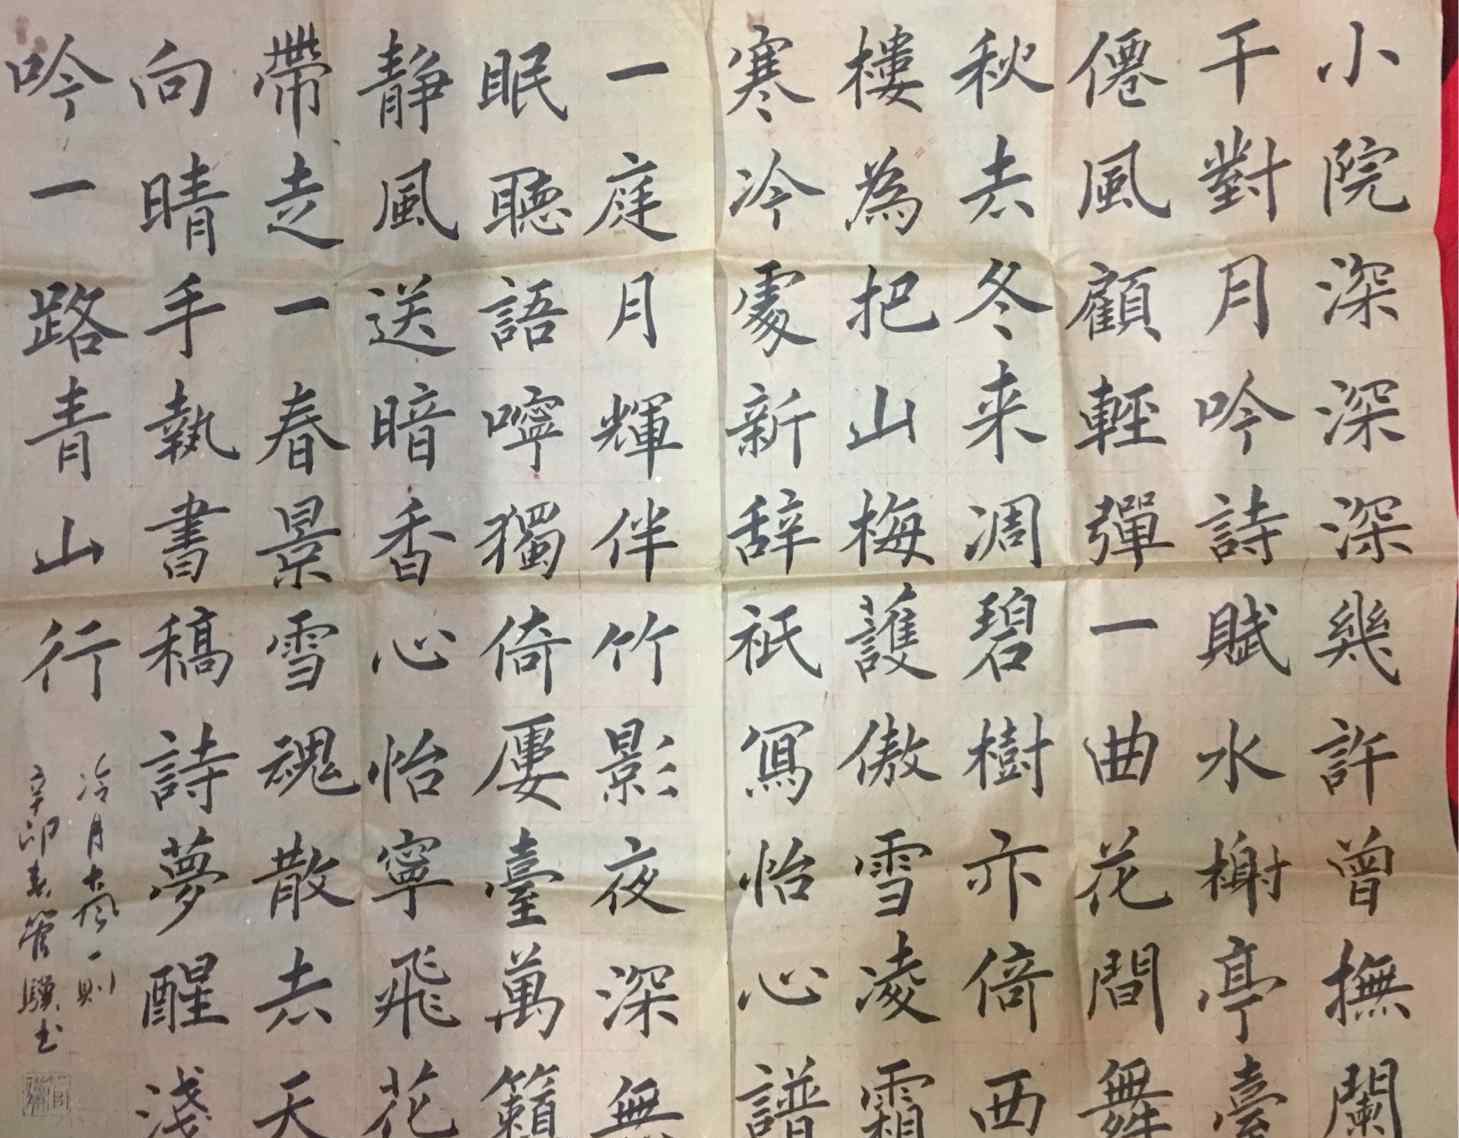 小院深深深幾許曾撫闌
干對月吟詩賦水榭亭臺
僊風顧輕彈一曲花間舞
秋去冬来凋碧樹亦倚西
樓為把山梅護傲雪凌霜
寒冷處新辞祇寫怡心譜
一庭月輝伴竹影夜深無
眠聽語嚀獨倚屢臺萬籟
静風送暗香心怡寧飛花
帶走一春景雪魂散去天
向晴手執書稿詩夢醒淺
吟一路青山行
冷月 一則
辛卯春管驥书